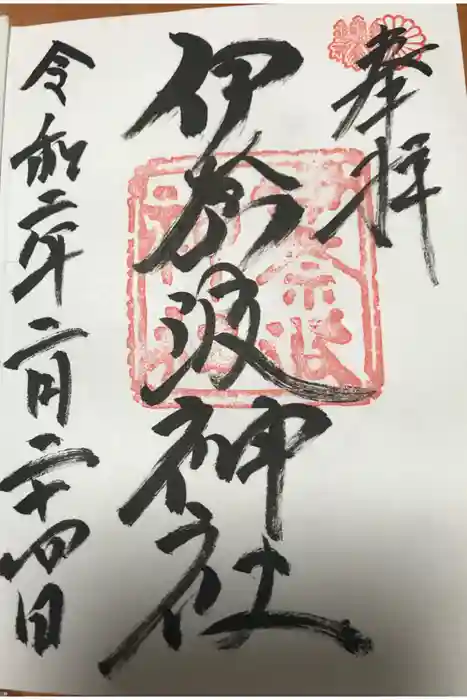 奉拝
伊奈波神社
令和二年二月二十四日